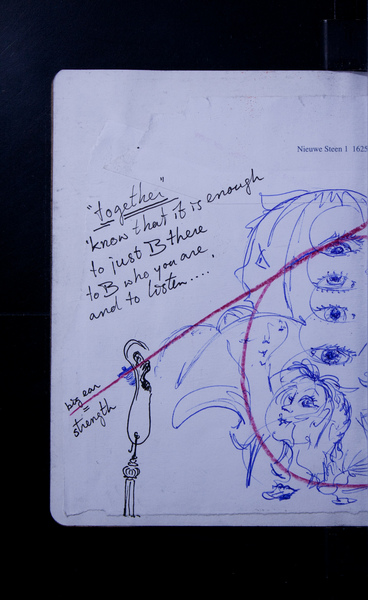 Nieuwe Steen 1 1625
"together"
know that it is enough
to just B there
to B who you are
and to listen....,
big ear
=
strength